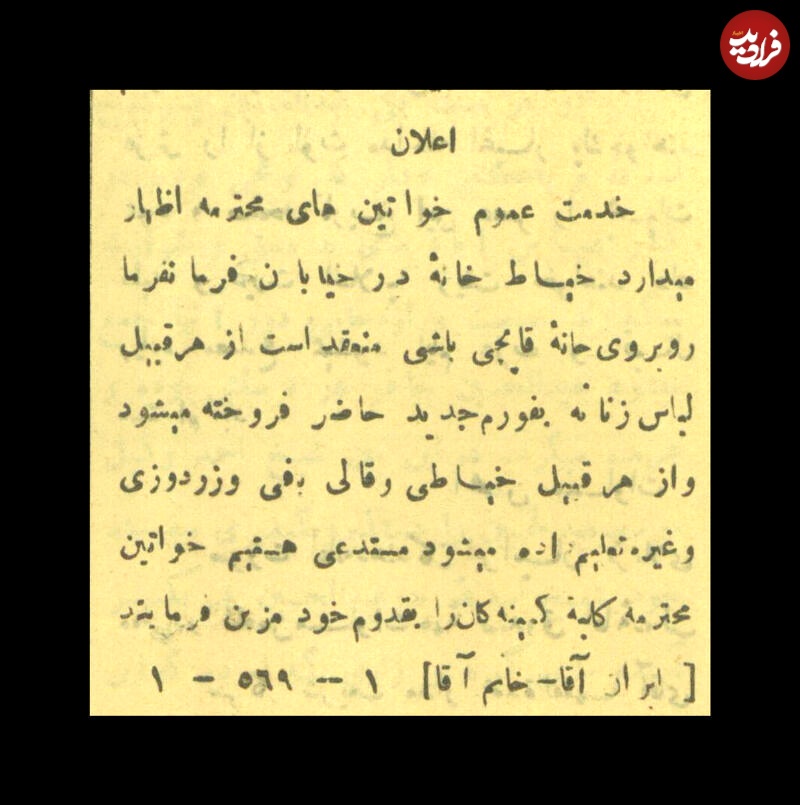 فرادید
اعلان
خدمت عموم خواتین های محترمه اظهار
میدارد خیاط خانهٔ در خیابان فرمانفرما
روبروی خانهٔ قاپچی باشی منعقد است از هر قبیل
لباس زنانه بفورم جدید حاضر فروخته میشود
و از هر قبیل خیاطی و قالی بافی و زردوزی
و غیره تعلیم داده میشود مستدعی هستیم خواتین
محترمه کلبهٔ کمینه کان را بقدوم خود مزین فرمایند
[ایران آقا - خانم آقا] ۱ -- ٥٦٩ - ۱